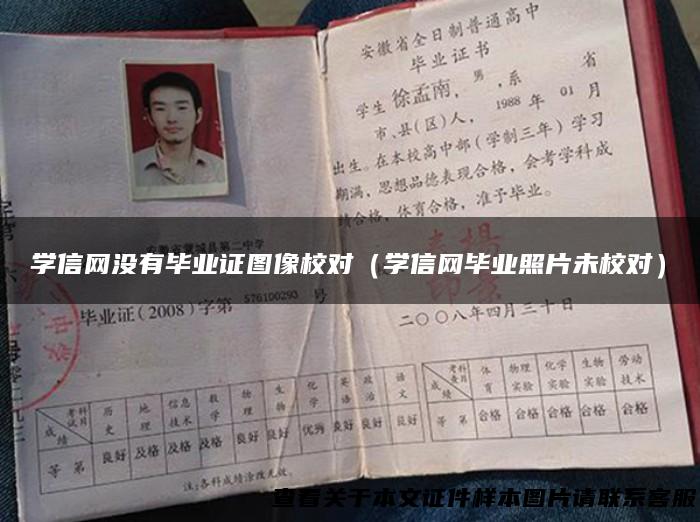 安徽省全日制普通高中
毕业证书
学生徐孟南，男，系 省
市、县(区)人，1988年01月
出生。在本校高中部（学制三年）学习
期满，思想品德表现合格，会考学科成
绩合格，体育合格，准予毕业。
安徽省蒙城县第二中学
学信网没有毕业证图像校对（学信网毕业照片未校对）
毕业证(2008)字第 576100293 号
二〇〇八年四月三十日
考试科目 成绩 历史 地理 信息技术 数学 物理 生物 化学 英语 政治 语文
等第 良好 及格 及格 及格 良好 良好 优秀 良好 良好 良好
注:各科成绩涂改无效。
考查科目 成绩 体育 物理实验 化学实验 生物实验 劳动技术
等第 合格 合格 合格 合格 合格
查看关于本文证件样本图片请联系客服